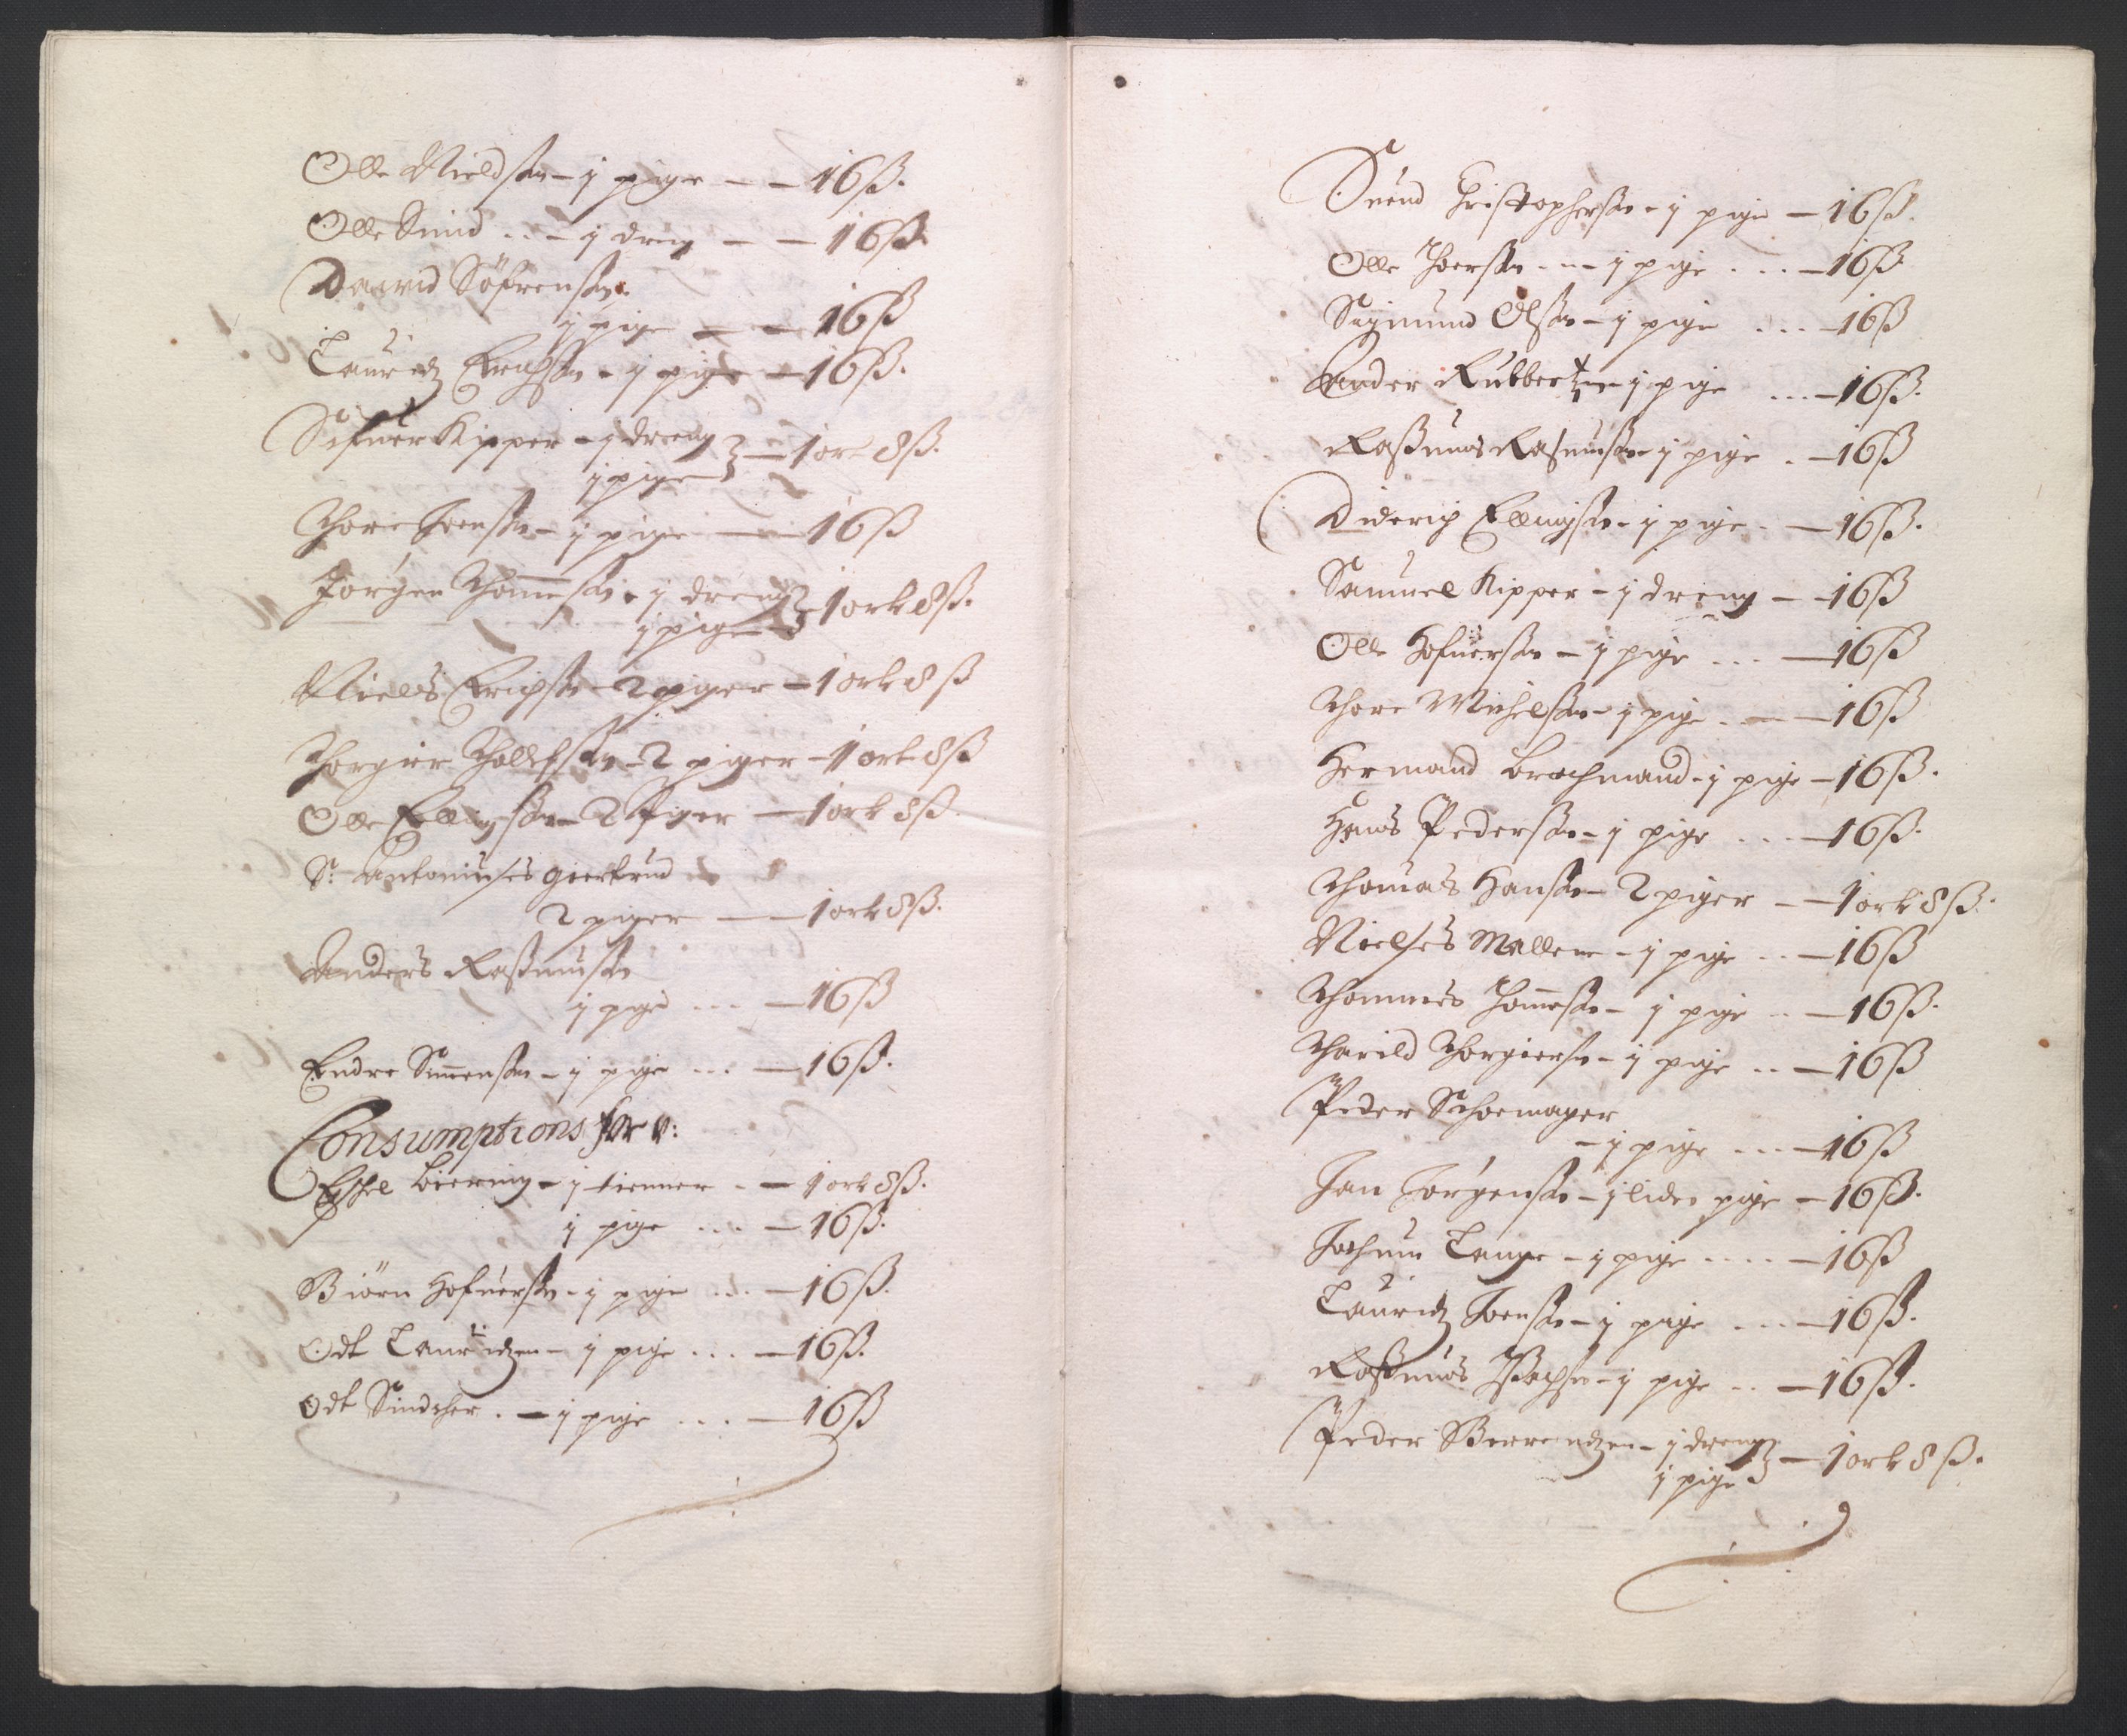 Olle Nield ßen - j pige - - 16 ß.
Olle Smid .. - j dreng - - 16 ß.
David Söfrenßen
j pige - - 16 ß
Lauridz Erichßen - j pige - 16 ß.
Sifuer Kipper - j dreng
j pige - 1 ort 8 ß.
Thore Joenßen - j pige - 16 ß
Jørgen Thommeßen - j dreng
j pige - 1 ort 8 ß.
Niels Erichßen - 2 piger - 1 ort 8 ß
Thorgier Tholleffßen - 2 piger - 1 ort 8 ß
Olle Ellingßen - 2 Piger - 1 ort 8 ß.
Sr. Antoniuses Giertrud
2 piger - 1 ort 8 ß.
Anders Raßmußen
j pige ... - 16 ß
Endre Simmenßen - j pige ... - 16 ß.
Consumptions
Eschel Biering - j tienner - - 1 ort 8 ß.
j pige ... - 16 ß.
Biörn Hofuerßen - j pige ... - 16 ß.
Odt Lauridzen - j pige ... - 16 ß.
Odt Sindcher . - j pige ... - 16 ß
Suend Christopherßen - j pige - 16 ß.
Olle Thoerßen - - - j pige ... - 16 ß
Sigmund Olßen - j pige ... - 16 ß
Ander Rubbertzen - j pige ... - 16 ß.
Raßmus Rasmußen - j pige . - 16 ß
Diderich Ellingßen - j pige - - 16 ß.
Samuel Kipper - j dreng - - 16 ß
Olle Hofuerßen - j pige ... - 16 ß
Thore Michelßen - j pige . - - 16 ß
Hermand Brochmand - j pige - 16 ß.
Hans Pederßen - j pige ... - 16 ß.
Thomas Hanßen - 2 piger - - 1 ort 8 ß.
Nielses Mallene - j pige .. - 16 ß
Thommes Thommeßen - j pige .. - 16 ß.
Tharild Thorgierßen - j pige .. - 16 ß
Peder Schoemager
- j pige ... - 16 ß
Jan Jørgenßen - j liden pige - 16 ß.
Jochum Lange - j pige .... - 16 ß
Lauridz Joenßen - j pige ... - 16 ß.
Raßmus Ißachßen - j pige .. - 16 ß.
Peder Berrendzen - j dreng
j pige - 1 ort 8 ß.